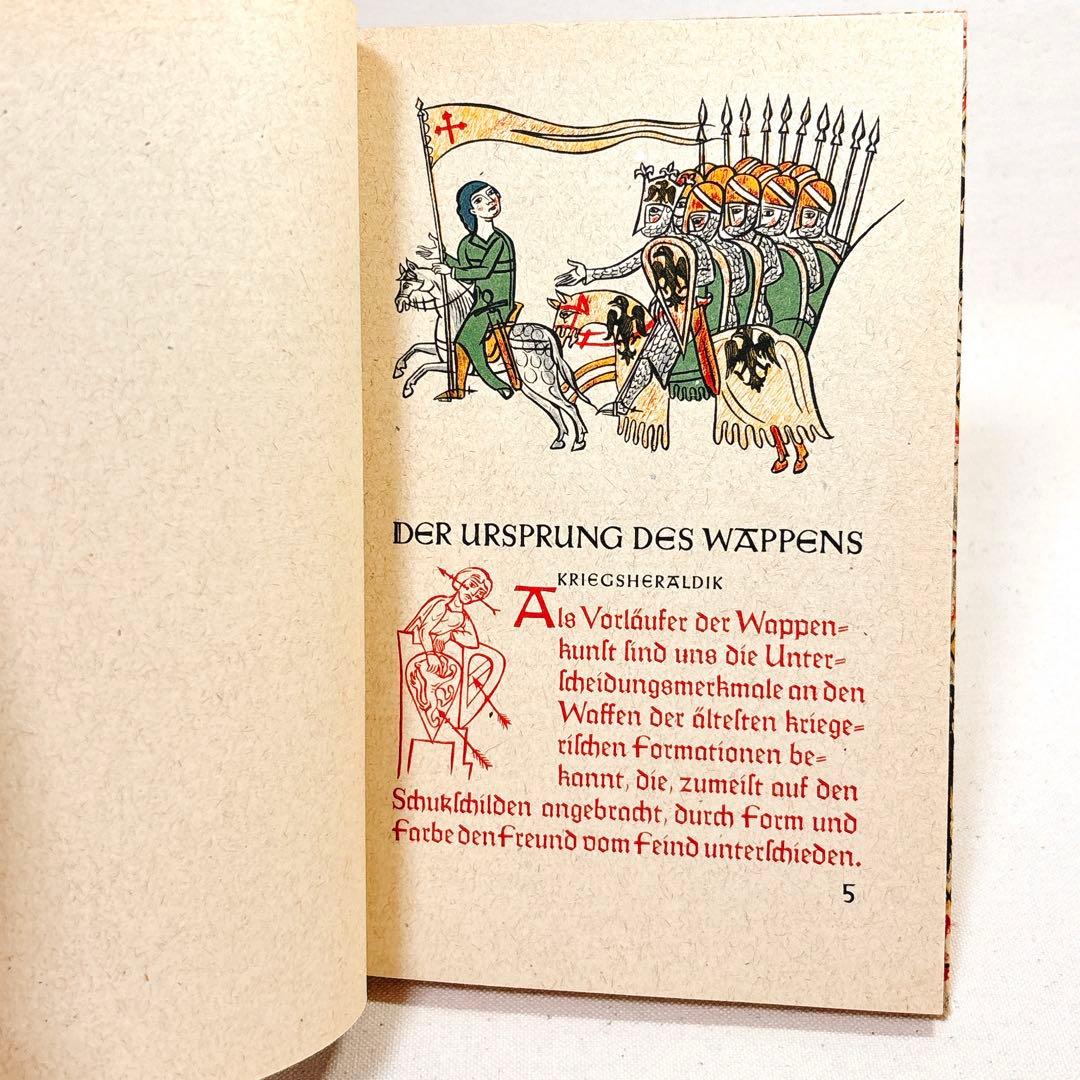 DER URSPRUNG DES WAPPENS
KRIEGSHERALDIK
Als Vorläufer der Wappen=
kunſt ſind uns die Unter=
ſcheidungsmerkmale an den
Waffen der älteſten kriege=
riſchen Formationen be=
kannt, die, zumeiſt auf den
Schutzſchilden angebracht, durch Form und
Farbe den Freund vom Feind unterſchieden.
5